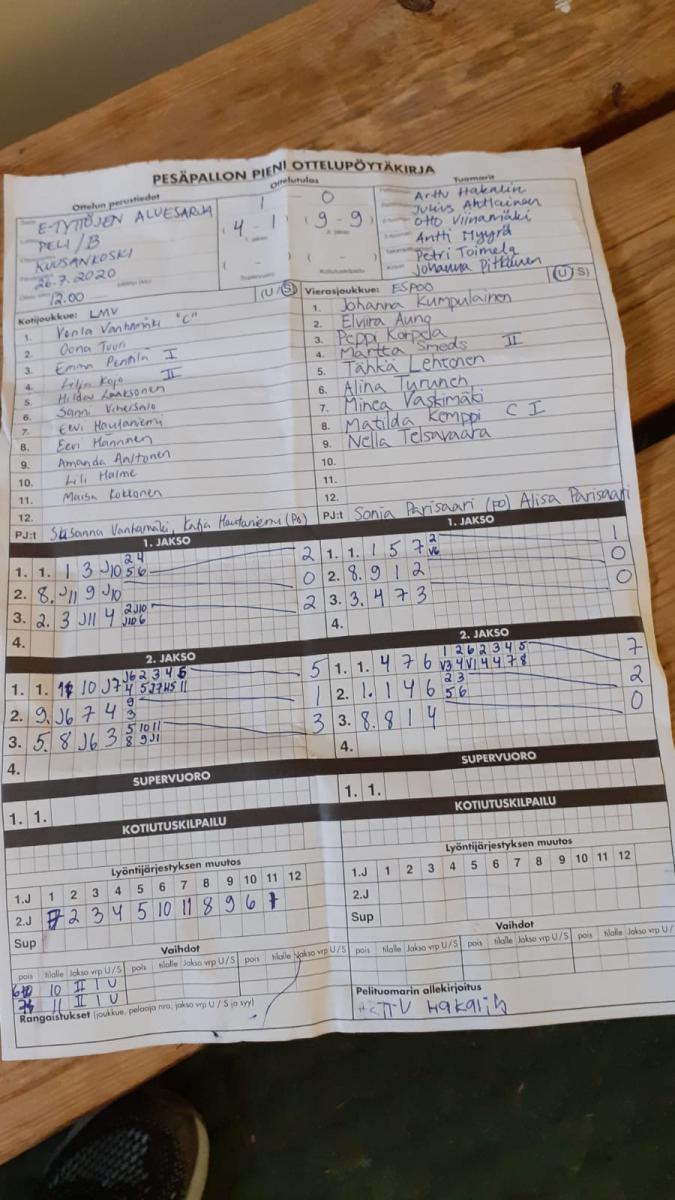 PESÄPALLON PIENI OTTELUPÖYTÄKIRJA
Ottelun perustiedot
Ottelutulos
Tuomarit
E-TYTTÖJEN ALUESARJA
PELI/B
KUUSANKOSKI
26.7.2020
12.00
1 0
(4 - 1) (9 - 9)
( - ) ( - )
Supervuoro Kotiutuskilpailu
Arttu Hakalin
Julius Ahtiainen
Otto Viinamäki
Antti Myyrä
Petri Toimela
Johanna Pitkänen
Kotijoukkue: LMV (U/S)
1. Venla Vanhamäki "C"
2. Oona Tuuri
3. Emma Penttilä I
4. Lilja Kojo II
5. Hilda Laaksonen
6. Sanni Vihersalo
7. Eevi Hautaniemi
8. Eevi Hänninen
9. Amanda Aaltonen
10. Lili Halme
11. Maisa Kokkonen
12.
PJ:t Susanna Vanhamäki, Katja Hautaniemi (PO)
Vierasjoukkue: ESPOO (U S)
1. Johanna Kumpulainen
2. Elviira Aung
3. Peppi Korpela
4. Martta Smeds II
5. Tähkä Lehtonen
6. Alina Turunen
7. Minea Vaskimäki
8. Matilda Kemppi C I
9. Nella Telsavaara
10.
11.
12.
PJ:t Sonja Parisaari (PO) Alisa Parisaari
1. JAKSO
1. 1. 1 3 J10 2 4 5 6 2
2. 8. J11 9 J10 0
3. 2. 3 J11 4 2 J10 J10 6 2
4.
1. JAKSO
1. 1. 1 5 7 2 V6 1
2. 8. 9 1 2 0
3. 3. 4 7 3 0
4.
2. JAKSO
1. 1. 10 J7 J6 2 3 4 5 4 5 J7 J5 11 5
2. 9. J6 7 4 9 3 1
3. 5. 8 J6 3 5 10 11 8 9 J1 3
4.
2. JAKSO
1. 1. 4 7 6 1 2 6 2 3 4 5 V3 4 V1 4 4 7 8 7
2. 1. 1 4 6 2 3 5 6 2
3. 8. 8 1 4 0
4.
SUPERVUORO
1. 1.
SUPERVUORO
1. 1.
KOTIUTUSKILPAILU
KOTIUTUSKILPAILU
Lyöntijärjestyksen muutos
1.J 1 2 3 4 5 6 7 8 9 10 11 12
2.J 7 2 3 4 5 10 11 8 9 6 1
Sup
Lyöntijärjestyksen muutos
1.J 1 2 3 4 5 6 7 8 9 10 11 12
2.J
Sup
Vaihdot
pois tilalle Jakso vrp U/S pois tilalle Jakso vrp U/S pois tilalle Jakso vrp U/S
10 II I U
11 II I U
Rangaistukset (joukkue, pelaaja nro, jakso vrp U / S ja syy)
Vaihdot
pois tilalle Jakso vrp U/S pois tilalle Jakso vrp U/S pois tilalle Jakso vrp U/
Pelituomarin allekirjoitus